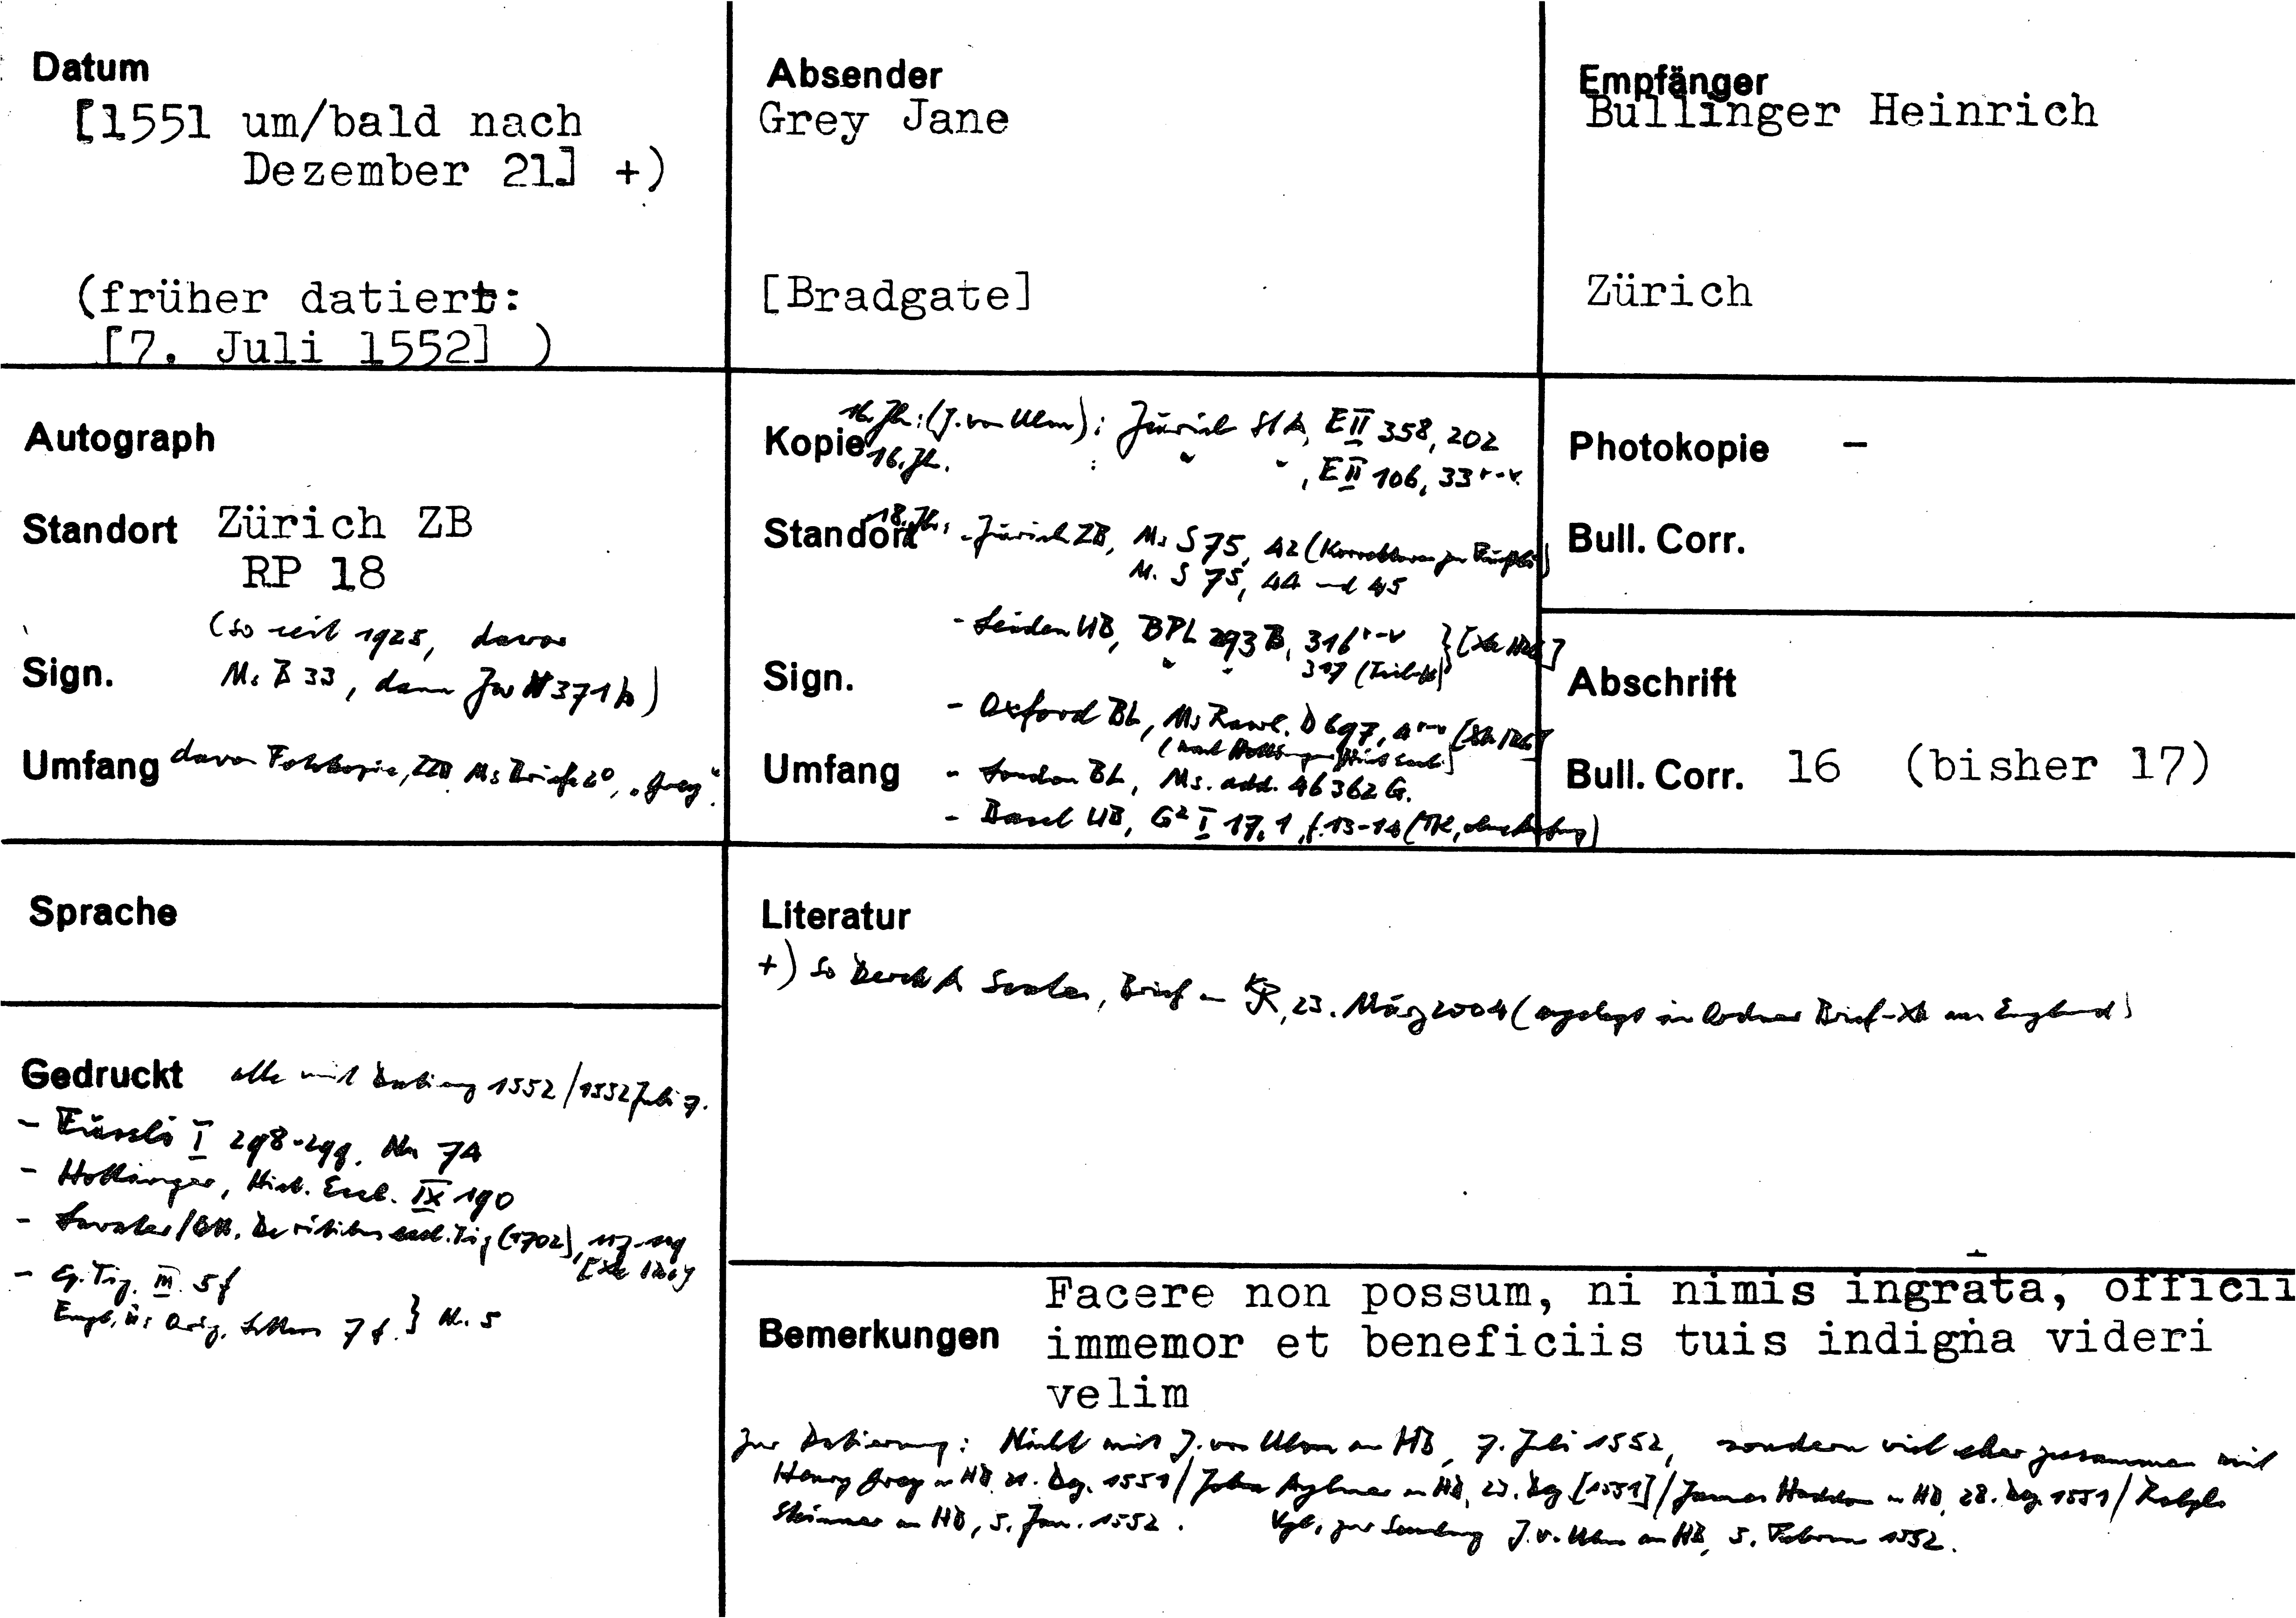 Datum
[1551 um/bald nach
Dezember 21] +)
(früher datiert:
[7. Juli 1552] )
Absender
Grey Jane
[Bradgate]
Empfänger
Bullinger Heinrich
Zürich
Autograph
Standort Zürich ZB
RP 18
(so seit 1925, davor
Sign. Ms B 33, dann 371b)
Umfang davon Fotokopie, ZB Ms Briefe 2°, "Grey".
Kopie 16. Jh.: (J. von Ulm): Zürich StA, E II 358, 202
16. Jh. : " " , E II 106, 33 r-v.
Standort 18. Jh.: - Zürich ZB, Ms S 75, 42 (Korrekturen zu Füssli)
Ms S 75, 44 und 45
- Leiden UB, BPL 293 B, 316 r-v
Sign. " " 317
- Oxford BL, Ms Rawl. D 697, 4 r-v
Umfang - London BL, Ms. add. 46362 G.
- Basel UB, G² I 17, 1, f. 13-14
Photokopie -
Bull. Corr.
Abschrift
Bull. Corr. 16 (bisher 17)
Sprache
Gedruckt alle mit Datierung 1552/1552 Juli 7.
- Füssli I 298-299, Nr 74
- Hottinger, Hist. Eccl. IX 190
- Lavater/Ott, De ritibus eccl. Tig (1702), 117-119
- Ep. Tig. III 5f
Engl. Üs Orig. Letters 7 f. } Nr. 5
Literatur
+) So Derek A. , Brief an KJR, 23. März 2004 (abgelegt in Ordner Brief-Xk aus England)
Bemerkungen
Facere non possum, ni nimis ingrata, officii
immemor et beneficiis tuis indigna videri
velim
Zur Datierung: Nicht mit J. von Ulm an HB, 7. Juli 1552, sondern viel eher zusammen mit
Henry Grey an HB 21. Dez. 1551 / John Aylmer an HB, 23. Dez [1551] / James Haddon an HB, 28. Dez. 1551 / Ralph
Skinner an HB, 5. Jan. 1552. Vgl. zur Sendung J. v. Ulm an HB, 5. Februar 1552.